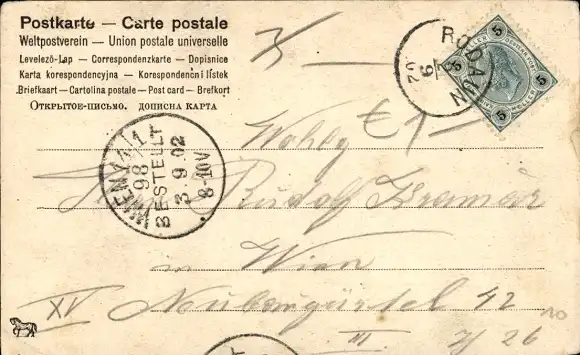 Postkarte — Carte postale
Weltpostverein — Union postale universelle
Levelező-Lap — Correspondenzkarte — Dopisnice
Karta korespondencyjna — Korespondenčni listek
Briefkaart — Cartolina postale — Post card — Brefkort
Открытое-письмо. дописна карта
RODAUN
9 02
5 HELLER 5
5 HELLER 5
WIEN 4/1
98
BESTELLT
3. 9. 02
8-10V
Wohlg
Rudolf Kramár
in Wien
XV Neubaugürtel 42
III. 7/26